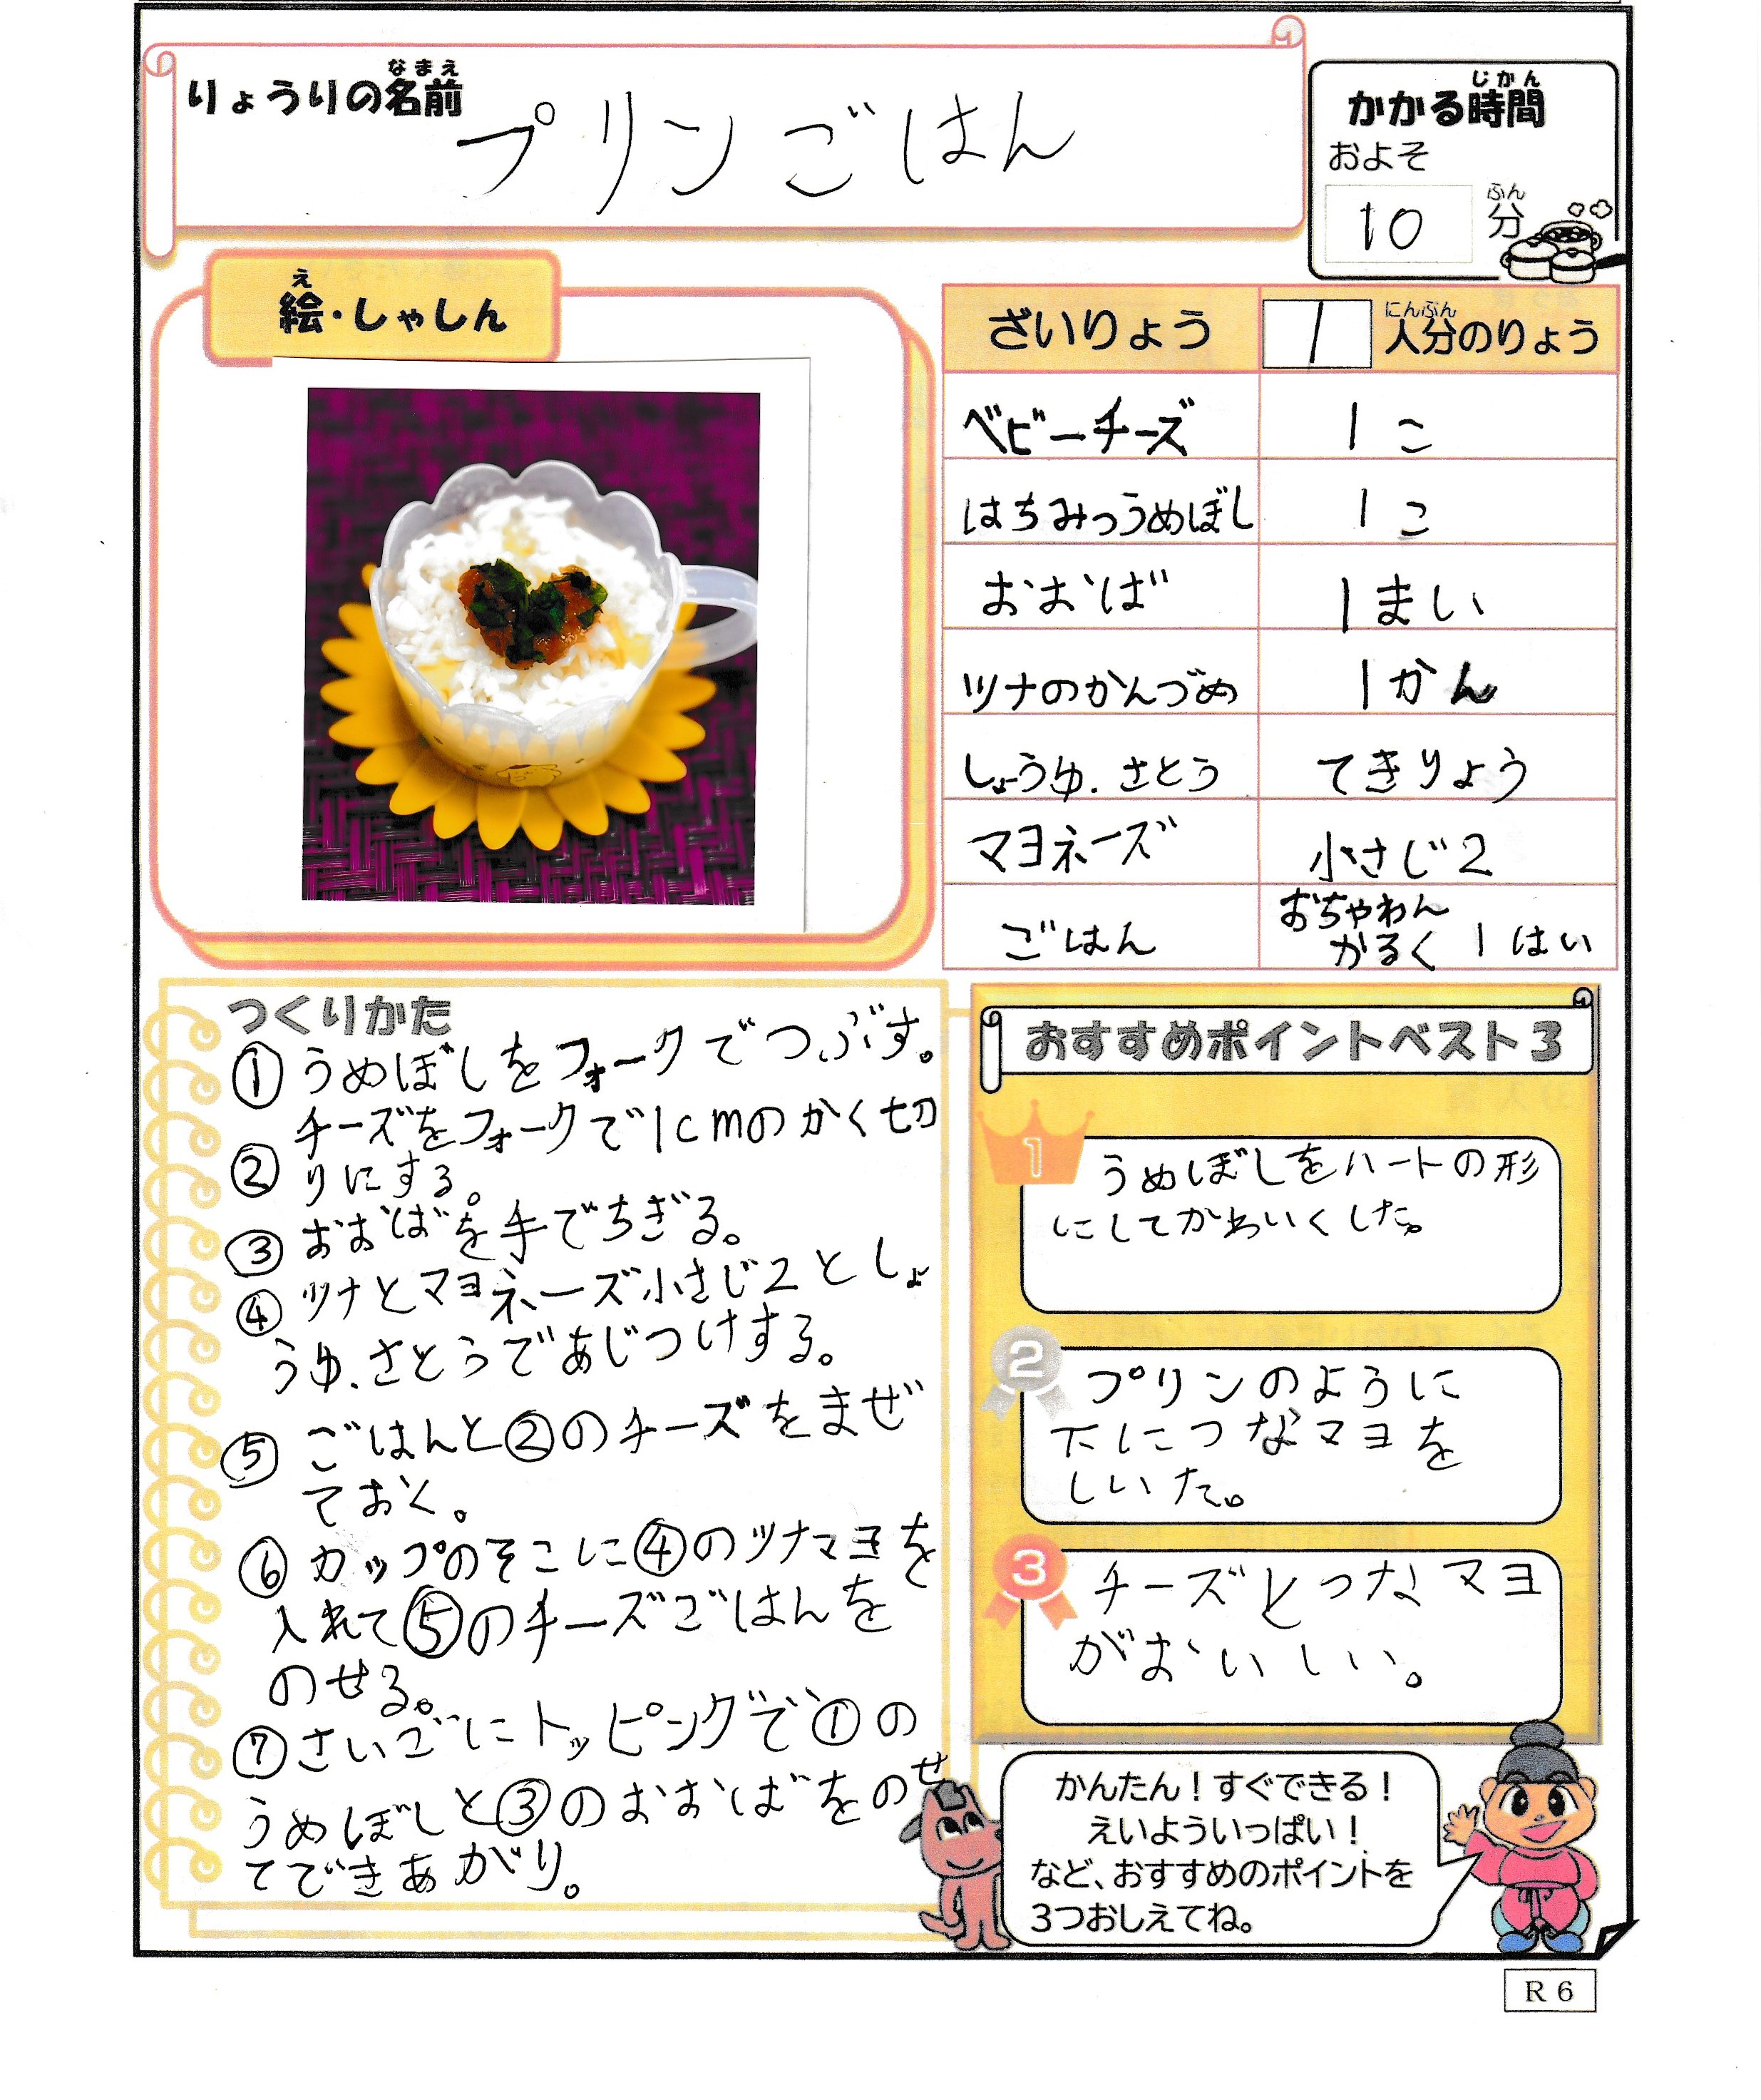 りょうりの名前
なまえ
プリンごはん
かかる時間
じかん
およそ
10
分
ふん
絵・しゃしん
え
ざいりょう
1
人分のりょう
にんぶん
ベビーチーズ
1こ
はちみつうめぼし
1こ
おおば
1まい
ツナのかんづめ
1かん
しょうゆ.さとう
てきりょう
マヨネーズ
小さじ2
ごはん
おちゃわん
かるく 1はい
つくりかた
①うめぼしをフォークでつぶす。
チーズをフォークで1cmのかく切
②りにする。
③おおばを手でちぎる。
④ツナとマヨネーズ小さじ2としょ
うゆ.さとうであじつけする。
⑤ごはんと②のチーズをまぜ
ておく。
⑥カップのそこに④のツナマヨを
入れて⑤のチーズごはんを
のせる。
⑦さいごにトッピングで①の
うめぼしと③のおおばをのせ
てできあがり。
おすすめポイントベスト3
1
うめぼしをハートの形
にしてかわいくした。
2
プリンのように
下につなマヨを
しいた。
3
チーズとつなマヨ
がおいしい。
かんたん！すぐできる！
えいよういっぱい！
など、おすすめのポイントを
3つおしえてね。
R6